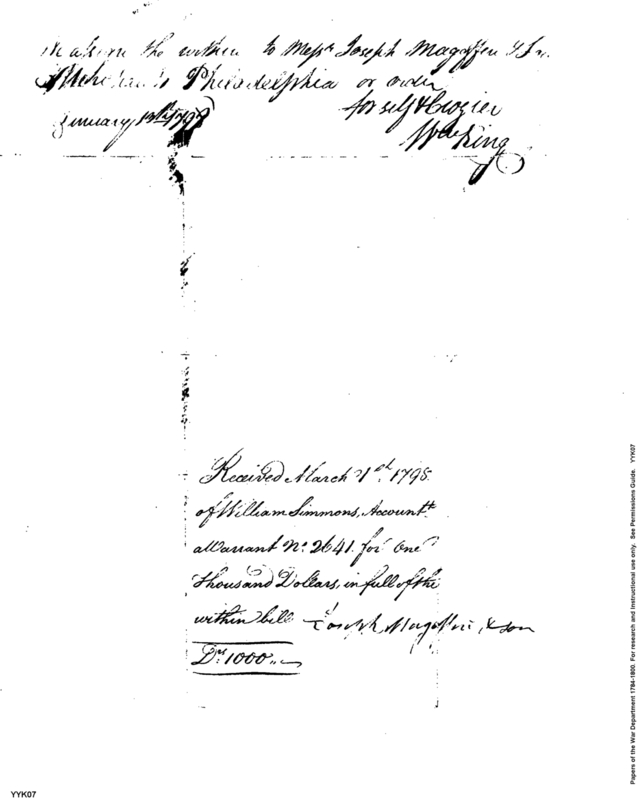 the within to Mess.rs Joseph Magoffen & Son
Merchants Philadelphia or order
January 18th 1798
for self & Crozier
Wm King
Received March 21st. 1798.
of William Simmons, Account.t
a Warrant No. 2641. for One
Thousand Dollars, in full of the
within bill
Joseph Magoffin & son
Drs. 1000..
Papers of the War Department 1784-1800. For research and instructional use only. See Permissions Guide. YYK07
YYK07